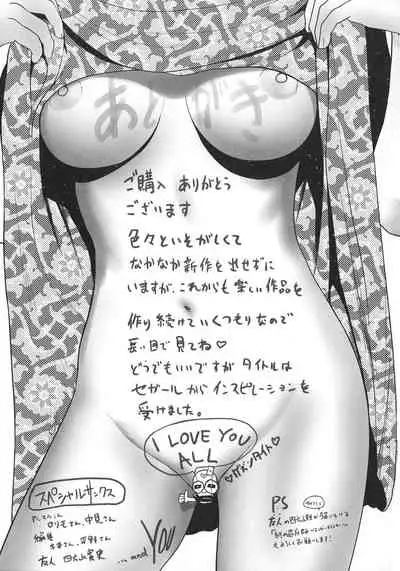 あとがき
ご購入 ありがとう
ございます
色々といそがしくて
なかなか新作を出せずに
いますが、これからも楽しい作品を
作り続けていくつもりなので
長い目で見てね♡
どうでもいいですが タイトルは
セガール が インスピレーションを
受けました。
I LOVE YOU
ALL
スペシャルサンクス
友人
...and YOU
PS
友人の